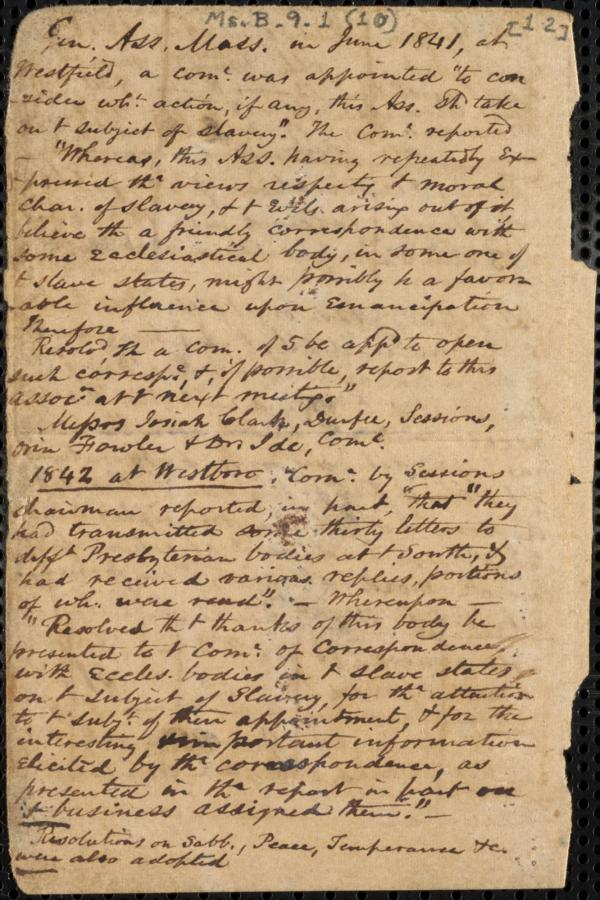 Ms. B. 9. 1 (10)
[12]
Gen. Ass. Mass. in June 1841, at
Westfield, a comt. was appointed "to con
-sider wht. action, if any, this Ass. shd take
on t subject of slavery". The Comt. reported
— "Whereas, this Ass. having repeatedly Ex-
-pressed thr views respectg t moral
char. of slavery, & t Evils arising out of it
believe th a friendly correspondence with
some Ecclesiastical body, in some one of
t slave states, might possibly be a favor
able influence upon Emancipation
Therefore —
Resolvd Th a Com. of 5 be appd to open
such correspe, &, if possible, report to this
assocn at t next meetg."
Messrs Josiah Clark, Durfee, Sessions,
Orin Fowler & Dr. Ide, Comt.
1842 at Westboro. Comt. by Sessions
chairman reported, in part, "that "they
had transmitted some thirty letters to
difft Presbyterian bodies at t South, &
had received various replies, portions
of wh. were read". — Whereupon —
"Resolved Th t thanks of this body be
presented to t Comt. of Correspondence
with Eccles. bodies in t slave states
on t subject of Slavery, for thr attention
to t subjt. of their appointment, & for the
interesting important information
Elicited by thr correspondence, as
presented in thr report in part on
t business assigned them." —
Resolutions on Sabb., Peace, Temperance &c.
were also adopted